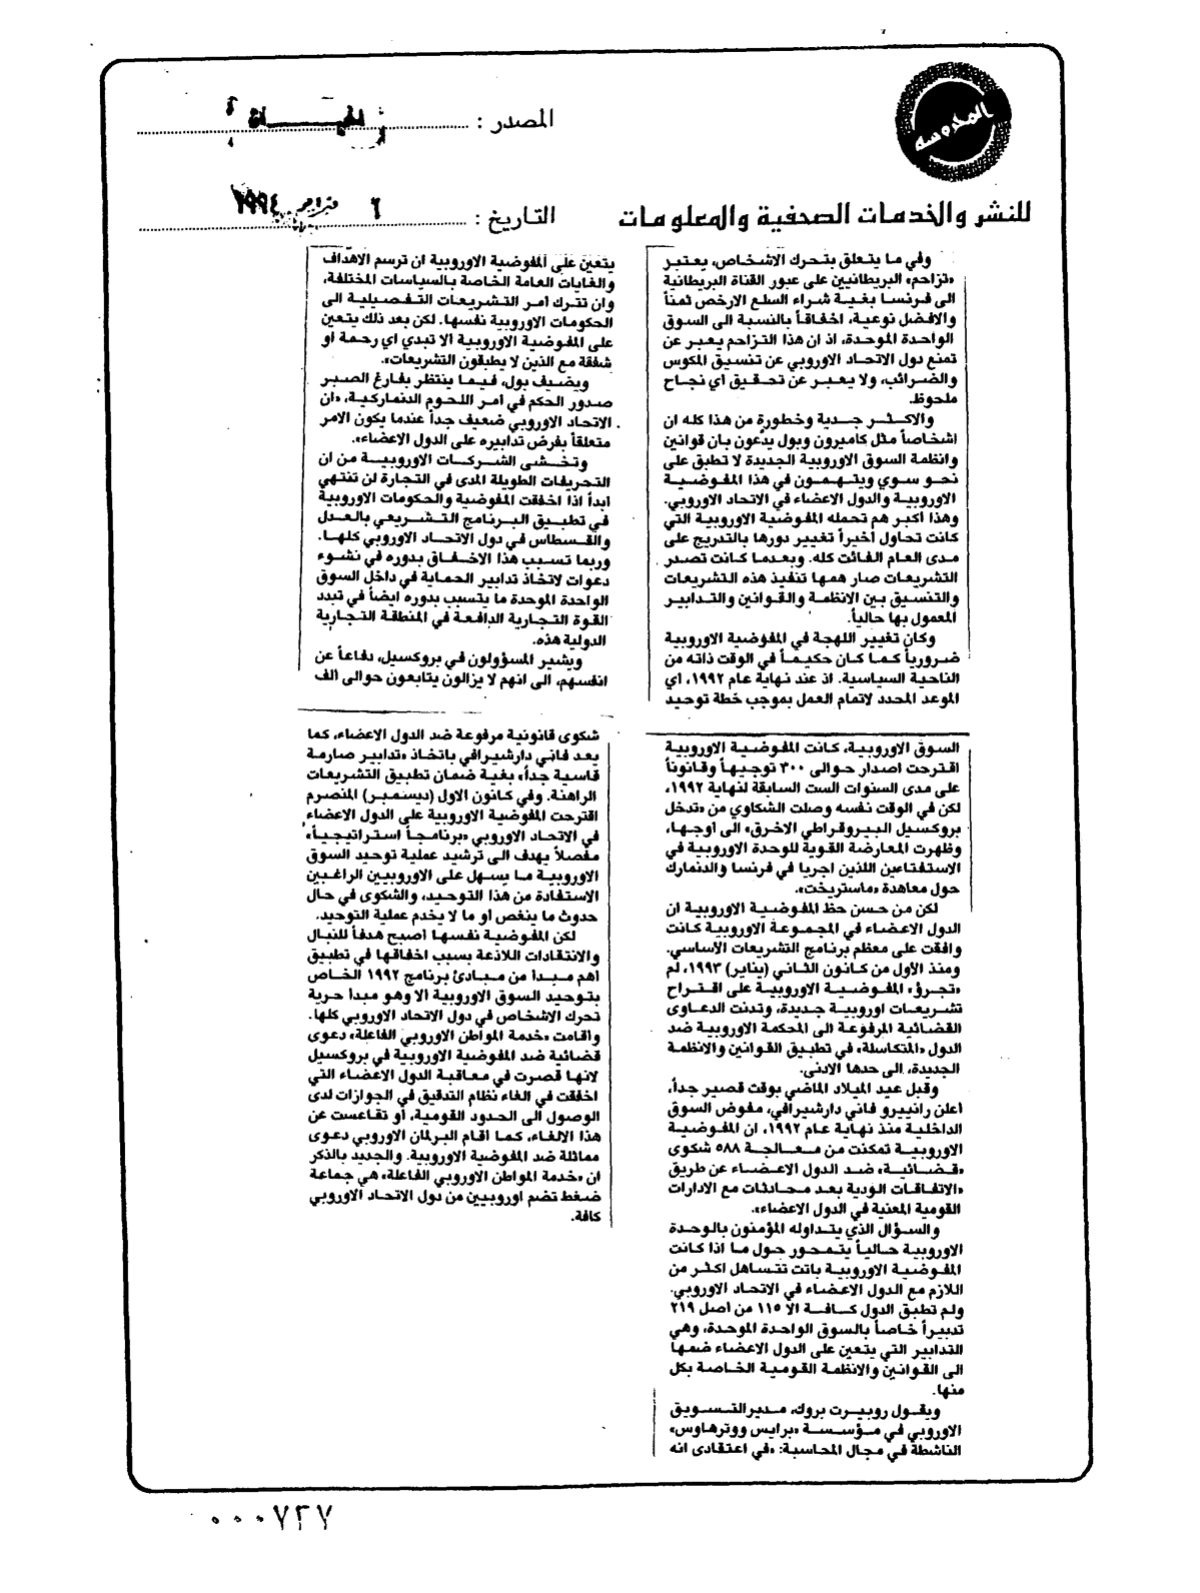 المحروسه
المصدر : الحياة
للنشر والخدمات الصحفية والمعلومات
التاريخ : ٦ فبراير ١٩٩٤
وفي ما يتعلق بتحرك الاشخاص، يعتبر
«تزاحم» البريطانيين على عبور القناة البريطانية
الى فرنسا بغية شراء السلع الارخص ثمناً
والافضل نوعية، اخفاقاً بالنسبة الى السوق
الواحدة الموحدة، اذ ان هذا التزاحم يعبر عن
تمنع دول الاتحاد الاوروبي عن تنسيق المكوس
والضرائب، ولا يعبر عن تحقيق اي نجاح
ملحوظ.
والاكثر جدية وخطورة من هذا كله ان
اشخاصاً مثل كاميرون وبول يدّعون بان قوانين
وانظمة السوق الاوروبية الجديدة لا تطبق على
نحو سوي ويتهمون في هذا المفوضية
الاوروبية والدول الاعضاء في الاتحاد الاوروبي.
وهذا اكبر هم تحمله المفوضية الاوروبية التي
كانت تحاول اخيراً تغيير دورها بالتدريج على
مدى العام الفائت كله. وبعدما كانت تصدر
التشريعات صار همها تنفيذ هذه التشريعات
والتنسيق بين الانظمة والقوانين والتدابير
المعمول بها حالياً.
وكان تغيير اللهجة في المفوضية الاوروبية
ضرورياً كما كان حكيماً في الوقت ذاته من
الناحية السياسية. اذ عند نهاية عام ١٩٩٢، اي
الموعد المحدد لاتمام العمل بموجب خطة توحيد
السوق الاوروبية، كانت المفوضية الاوروبية
اقترحت اصدار حوالى ٣٠٠ توجيهاً وقانوناً
على مدى السنوات الست السابقة لنهاية ١٩٩٢،
لكن في الوقت نفسه وصلت الشكاوي من «تدخل
بروكسيل البيروقراطي الاخرق» الى اوجها،
وظهرت المعارضة القوية للوحدة الاوروبية في
الاستفتاءين اللذين اجريا في فرنسا والدنمارك
حول معاهدة «ماستريخت».
لكن من حسن حظ المفوضية الاوروبية ان
الدول الاعضاء في المجموعة الاوروبية كانت
وافقت على معظم برنامج التشريعات الأساسي.
ومنذ الأول من كانون الثاني (يناير) ١٩٩٣، لم
«تجرؤ» المفوضية الاوروبية على اقتراح
تشريعات اوروبية جديدة، وتدنت الدعاوى
القضائية المرفوعة الى المحكمة الاوروبية ضد
الدول «المتكاسلة» في تطبيق القوانين والانظمة
الجديدة، الى حدها الادنى.
وقبل عيد الميلاد الماضي بوقت قصير جداً،
اعلن رانييرو فاني دارشيرافي، مفوض السوق
الداخلية منذ نهاية عام ١٩٩٢، ان المفوضية
الاوروبية تمكنت من معالجة ٥٨٨ شكوى
«قضائية» ضد الدول الاعضاء عن طريق
«الاتفاقات الودية بعد محادثات مع الادارات
القومية المعنية في الدول الاعضاء».
والسؤال الذي يتداوله المؤمنون بالوحدة
الاوروبية حالياً يتمحور حول ما اذا كانت
المفوضية الاوروبية باتت تتساهل اكثر من
اللازم مع الدول الاعضاء في الاتحاد الاوروبي.
ولم تطبق الدول كافة الا ١١٥ من اصل ٢١٩
تدبيراً خاصاً بالسوق الواحدة الموحدة، وهي
التدابير التي يتعين على الدول الاعضاء ضمها
الى القوانين والانظمة القومية الخاصة بكل
منها.
ويقول روبيرت بروك، مدير التسويق
الاوروبي في مؤسسة «برايس ووترهاوس»
الناشطة في مجال المحاسبة: «في اعتقادي انه
يتعين على المفوضية الاوروبية ان ترسم الاهداف
والغايات العامة الخاصة بالسياسات المختلفة،
وان تترك امر التشريعات التفصيلية الى
الحكومات الاوروبية نفسها. لكن بعد ذلك يتعين
على المفوضية الاوروبية الا تبدي اي رحمة او
شفقة مع الذين لا يطبقون التشريعات».
ويضيف بول، فيما ينتظر بفارغ الصبر
صدور الحكم في امر اللحوم الدنماركية، «ان
الاتحاد الاوروبي ضعيف جداً عندما يكون الامر
متعلقاً بفرض تدابيره على الدول الاعضاء».
وتخشى الشركات الاوروبية من ان
التحريفات الطويلة المدى في التجارة لن تنتهي
ابداً اذا اخفقت المفوضية والحكومات الاوروبية
في تطبيق البرنامج التشريعي بالعدل
والقسطاس في دول الاتحاد الاوروبي كلها.
وربما تسبب هذا الاخفاق بدوره في نشوء
دعوات لاتخاذ تدابير الحماية في داخل السوق
الواحدة الموحدة ما يتسبب بدوره ايضاً في تبدد
القوة التجارية الدافعة في المنطقة التجارية
الدولية هذه.
ويشير المسؤولون في بروكسيل، دفاعاً عن
انفسهم، الى انهم لا يزالون يتابعون حوالى الف
شكوى قانونية مرفوعة ضد الدول الاعضاء، كما
يعد فاني دارشيرافي باتخاذ «تدابير صارمة
قاسية جداً» بغية ضمان تطبيق التشريعات
الراهنة. وفي كانون الاول (ديسمبر) المنصرم
اقترحت المفوضية الاوروبية على الدول الاعضاء
في الاتحاد الاوروبي «برنامجاً استراتيجياً»
مفصلاً يهدف الى ترشيد عملية توحيد السوق
الاوروبية ما يسهل على الاوروبيين الراغبين
الاستفادة من هذا التوحيد، والشكوى في حال
حدوث ما ينغص او ما لا يخدم عملية التوحيد.
لكن المفوضية نفسها اصبح هدفاً للنبال
والانتقادات اللاذعة بسبب اخفاقها في تطبيق
اهم مبدأ من مبادئ برنامج ١٩٩٢ الخاص
بتوحيد السوق الاوروبية الا وهو مبدأ حرية
تحرك الاشخاص في دول الاتحاد الاوروبي كلها.
واقامت «خدمة المواطن الاوروبي الفاعلة» دعوى
قضائية ضد المفوضية الاوروبية في بروكسيل
لانها قصرت في معاقبة الدول الاعضاء التي
اخفقت في الغاء نظام التدقيق في الجوازات لدى
الوصول الى الحدود القومية، او تقاعست عن
هذا الالغاء، كما اقام البرلمان الاوروبي دعوى
مماثلة ضد المفوضية الاوروبية. والجديد بالذكر
ان «خدمة المواطن الاوروبي الفاعلة» هي جماعة
ضغط تضم اوروبيين من دول الاتحاد الاوروبي
كافة.
٠٠٠٧٢٧